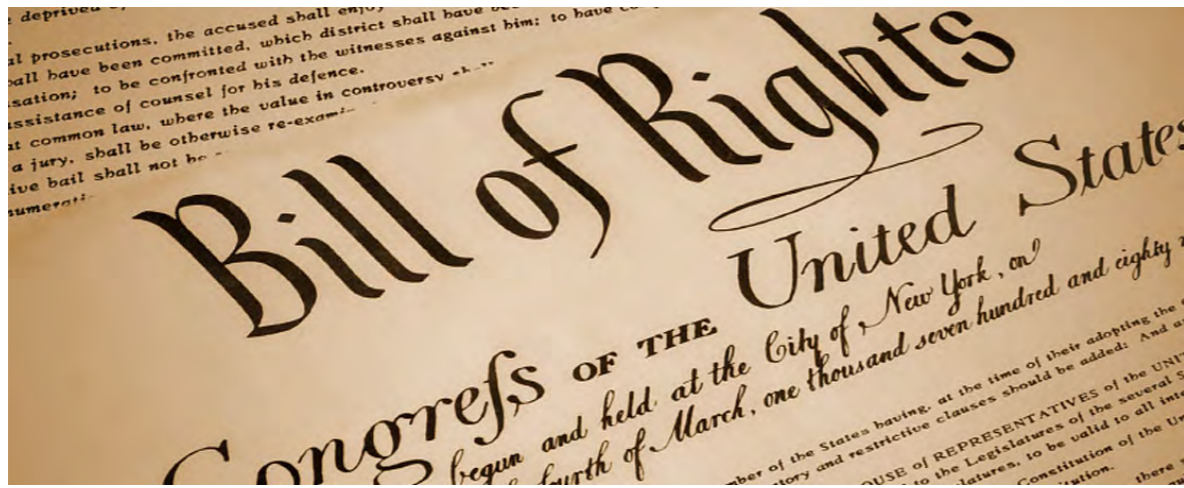 deprived
al prosecutions, the accused shall enjoy
all have been committed, which district shall have
sation; to be confronted with the witnesses against him; to have
assistance of counsel for his defence.
at common law, where the value in controversy
a jury, shall be otherwise re-exami
ive bail shall not be
numerati
Bill of Rights
Congreſs OF THE United States
begun and held at the City of New York, on
fourth of March, one thousand seven hundred and eighty
mber of the States having, at the time of their adopting the
tory and restrictive clauses should be added: And
OUSE of REPRESENTATIVES of the UNIT
to the Legislatures of the several S
latures, to be valid to all inte
Constitution of the Un
itution.
there